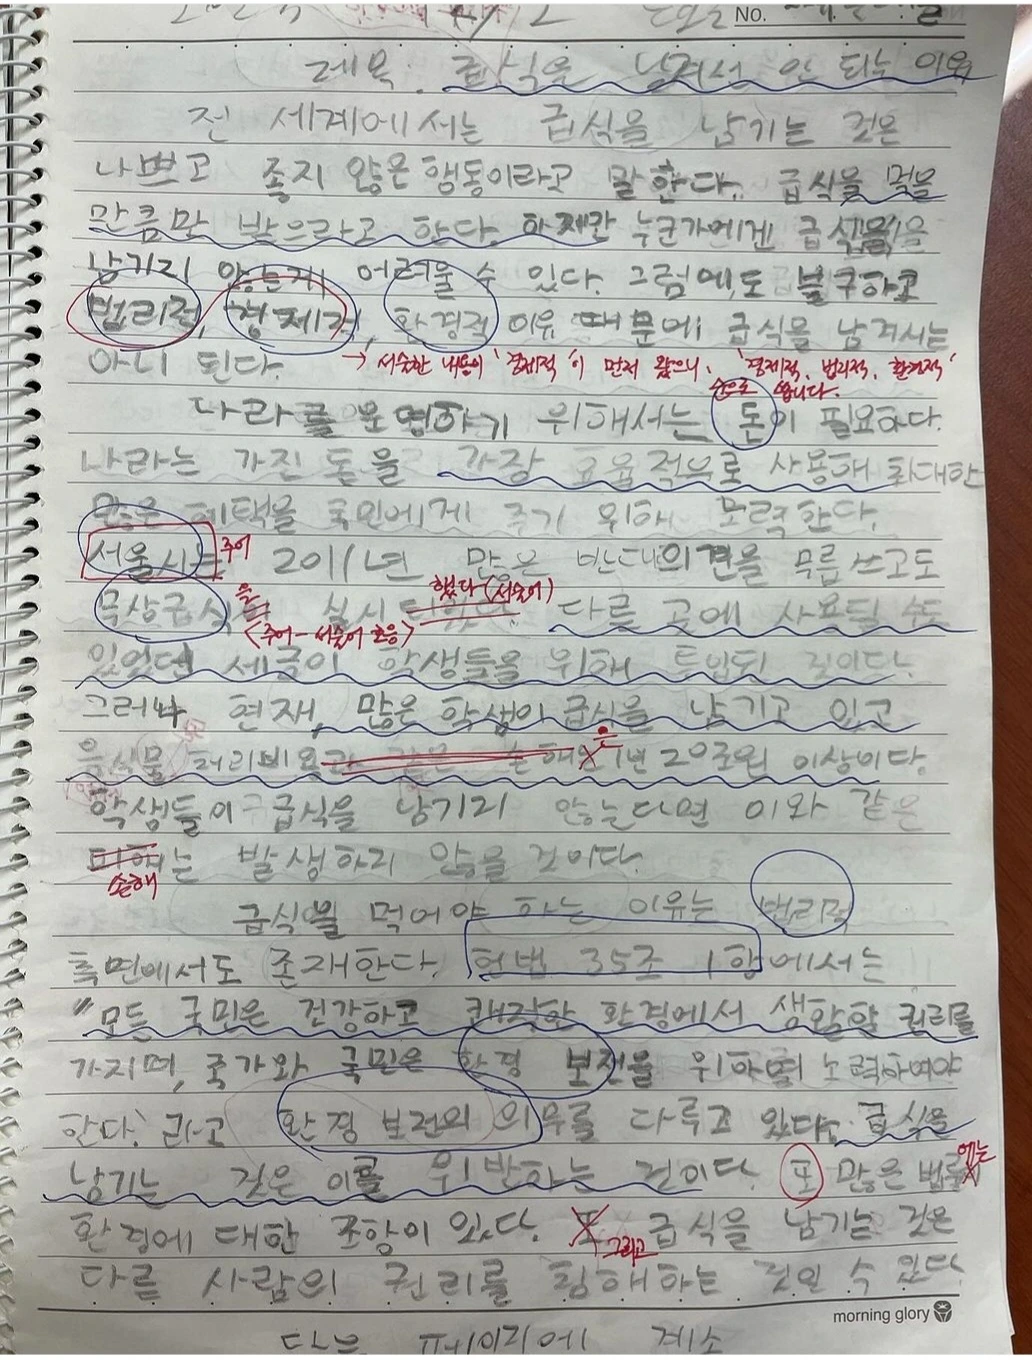 No.
제목 : 급식을 남겨선 안 되는 이유
전 세계에서는 급식을 남기는 것은
나쁘고 좋지 않은 행동이라고 말한다. 급식을 먹을
만큼만 받으라고 한다. 하지만 누군가에겐 급식을
남기지 않는게 어려울 수 있다. 그럼에도 불구하고
법리적, 경제적, 환경적 이유 때문에 급식을 남겨서는
아니 된다.
→ 서술한 내용이 '경제적'이 먼저 왔으니, '경제적, 법리적, 환경적'
순으로 씁니다.
나라를 운영하기 위해서는 돈이 필요하다.
나라는 가진 돈을 가장 효율적으로 사용해 최대한
많은 혜택을 국민에게 주기 위해 노력한다.
서울시는 주어 2011년 많은 반대의견을 무릅쓰고도
무상급식 을 실시 했다(서술어) 다른 곳에 사용될 수도
<주어-서술어 호응>
있었던 세금이 학생들을 위해 투입된 것이다.
그러나 현재, 많은 학생이 급식을 남기고 있고
음식물 처리비용과 같은 손해는 은 1년 20조원 이상이다.
학생들이 급식을 남기지 않는다면 이와 같은
피해는 발생하지 않을 것이다.
손해
급식을 먹어야 하는 이유는 법리적
측면에서도 존재한다. 헌법 35조 1항에서는
"모든 국민은 건강하고 쾌적한 환경에서 생활할 권리를
가지며, 국가와 국민은 환경 보전을 위하여 노력하여야
한다."라고 환경 보전의 의무를 다루고 있다. 급식을
남기는 것은 이를 위반하는 것이다. 또 많은 법률 에는
환경에 대한 조항이 있다. 또 그리고 급식을 남기는 것은
다른 사람의 권리를 침해하는 것일 수 있다.
morning glory
다음 페이지에 계속